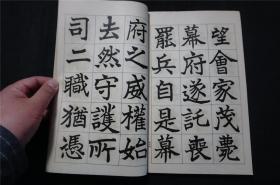 望會家茂薨
幕府遂託喪
罷兵自是幕
府之威權始
去然守護所
司二職猶憑